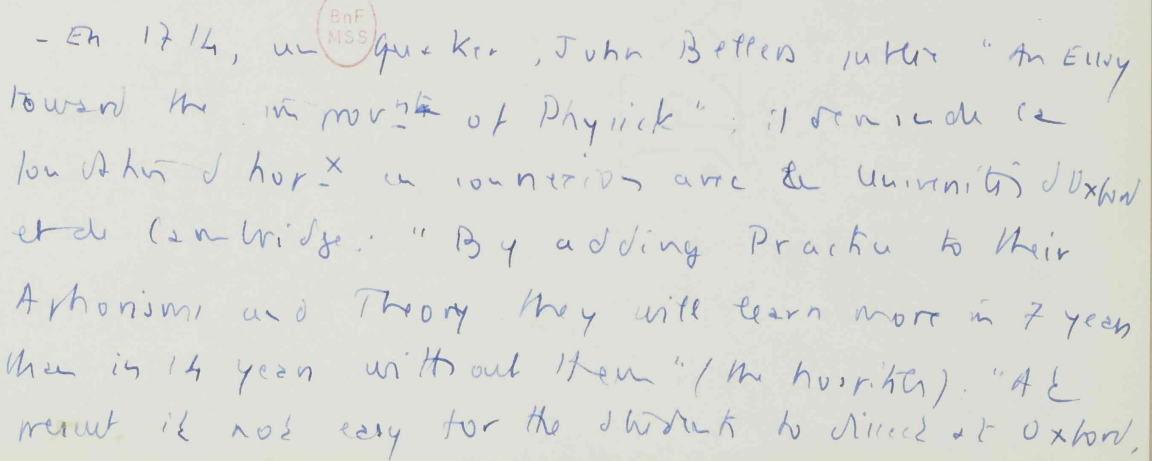 - En 1714, un Quaker, John Bellers publie "An Essay
BnF
MSS
toward the improvt of Physick" : il demande la
fondation d'hopx en connexion avec les Universités d'Oxford
et de Cambridge. "By adding Practice to their
Aphorisms and Theory they will learn more in 7 years
than in 14 years without them" (the hospitals). "At
present it not easy for the students to dissect at Oxford.